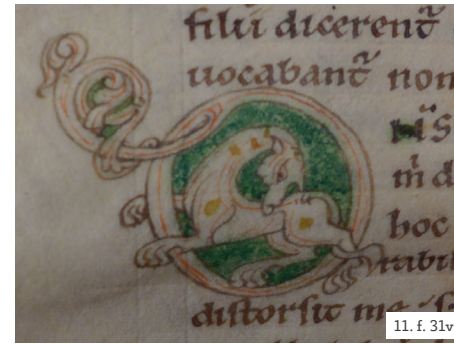 filii dicerent̃
uocabant̃ non
m̃ d
hoc
rabi
distorsit me
11. f. 31v